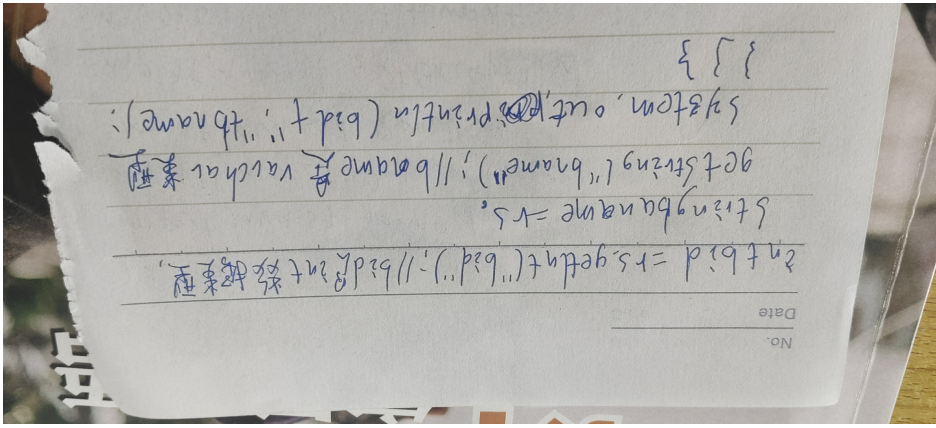 No.
Date
int bid = rs.getInt("bid"); //bid是int数据类型,
String baname = rs.
getString("bname"); //bname是varchar类型
System.out.println(bid+","+bname);
} } }